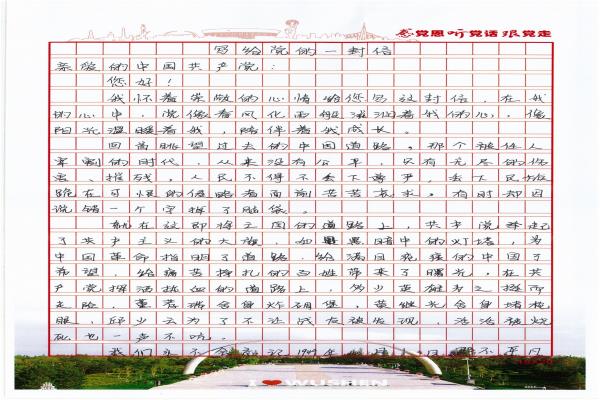 感党恩 听党话 跟党走
写给党的一封信
亲爱的中国共产党：
您好！
我怀着崇敬的心情给您写这封信，在我
的心中，党像春风化雨般滋润着我的心，像
阳光温暖着我，陪伴着我成长。
回首眺望过去的中国道路。那个被任人
宰割的时代，从来没有公平，只有无尽的伤
害、摧残。人民不得不丢下尊严，丢下民族
跪在可恨的侵略者面前苦苦哀求。有时却因
说错一个字掉了脑袋。
就在这即将亡国的道路上，共产党举起
了共产主义的大旗，如黑暗中的灯塔，为
中国革命指明了道路，给满目疮痍的中国予
希望，给痛苦挣扎的百姓带来了曙光。在共
产党挥洒热血的道路上，多少英雄为之挺而
走险，董存瑞舍身炸碉堡，黄继光舍身堵枪
眼，邱少云为了不让战友被发现，活活被烧
死也一声不吭。
我们永不会忘记1949年 月 不平凡
I ❤ WUSHEN